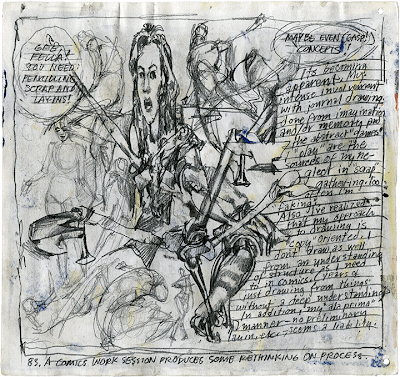 GEEZ,
FELLA!
YOU NEED
PENCILING
SCRAP AND
LAYINS!
MAYBE EVEN (GASP!)
CONCEPTS!
It's becoming
apparent. My
intense involvement
with journal drawing,
done from imagination
and/or memory, and
the abstract "games"
I play are the
sources of my ne-
glect in scrap
gathering too
often I'm
taking.
Also I've realized
that my approach
to drawing is
copy oriented. I
don't draw as well
from an understanding
of structure as I need
to in comics. Years of
just drawing from things
without a deep understanding.
In addition, my "ala prima"
manner — no preliminary
layin, etc. — seems a liability.
83. A COMICS WORK SESSION PRODUCES SOME RETHINKING ON PROCESS.